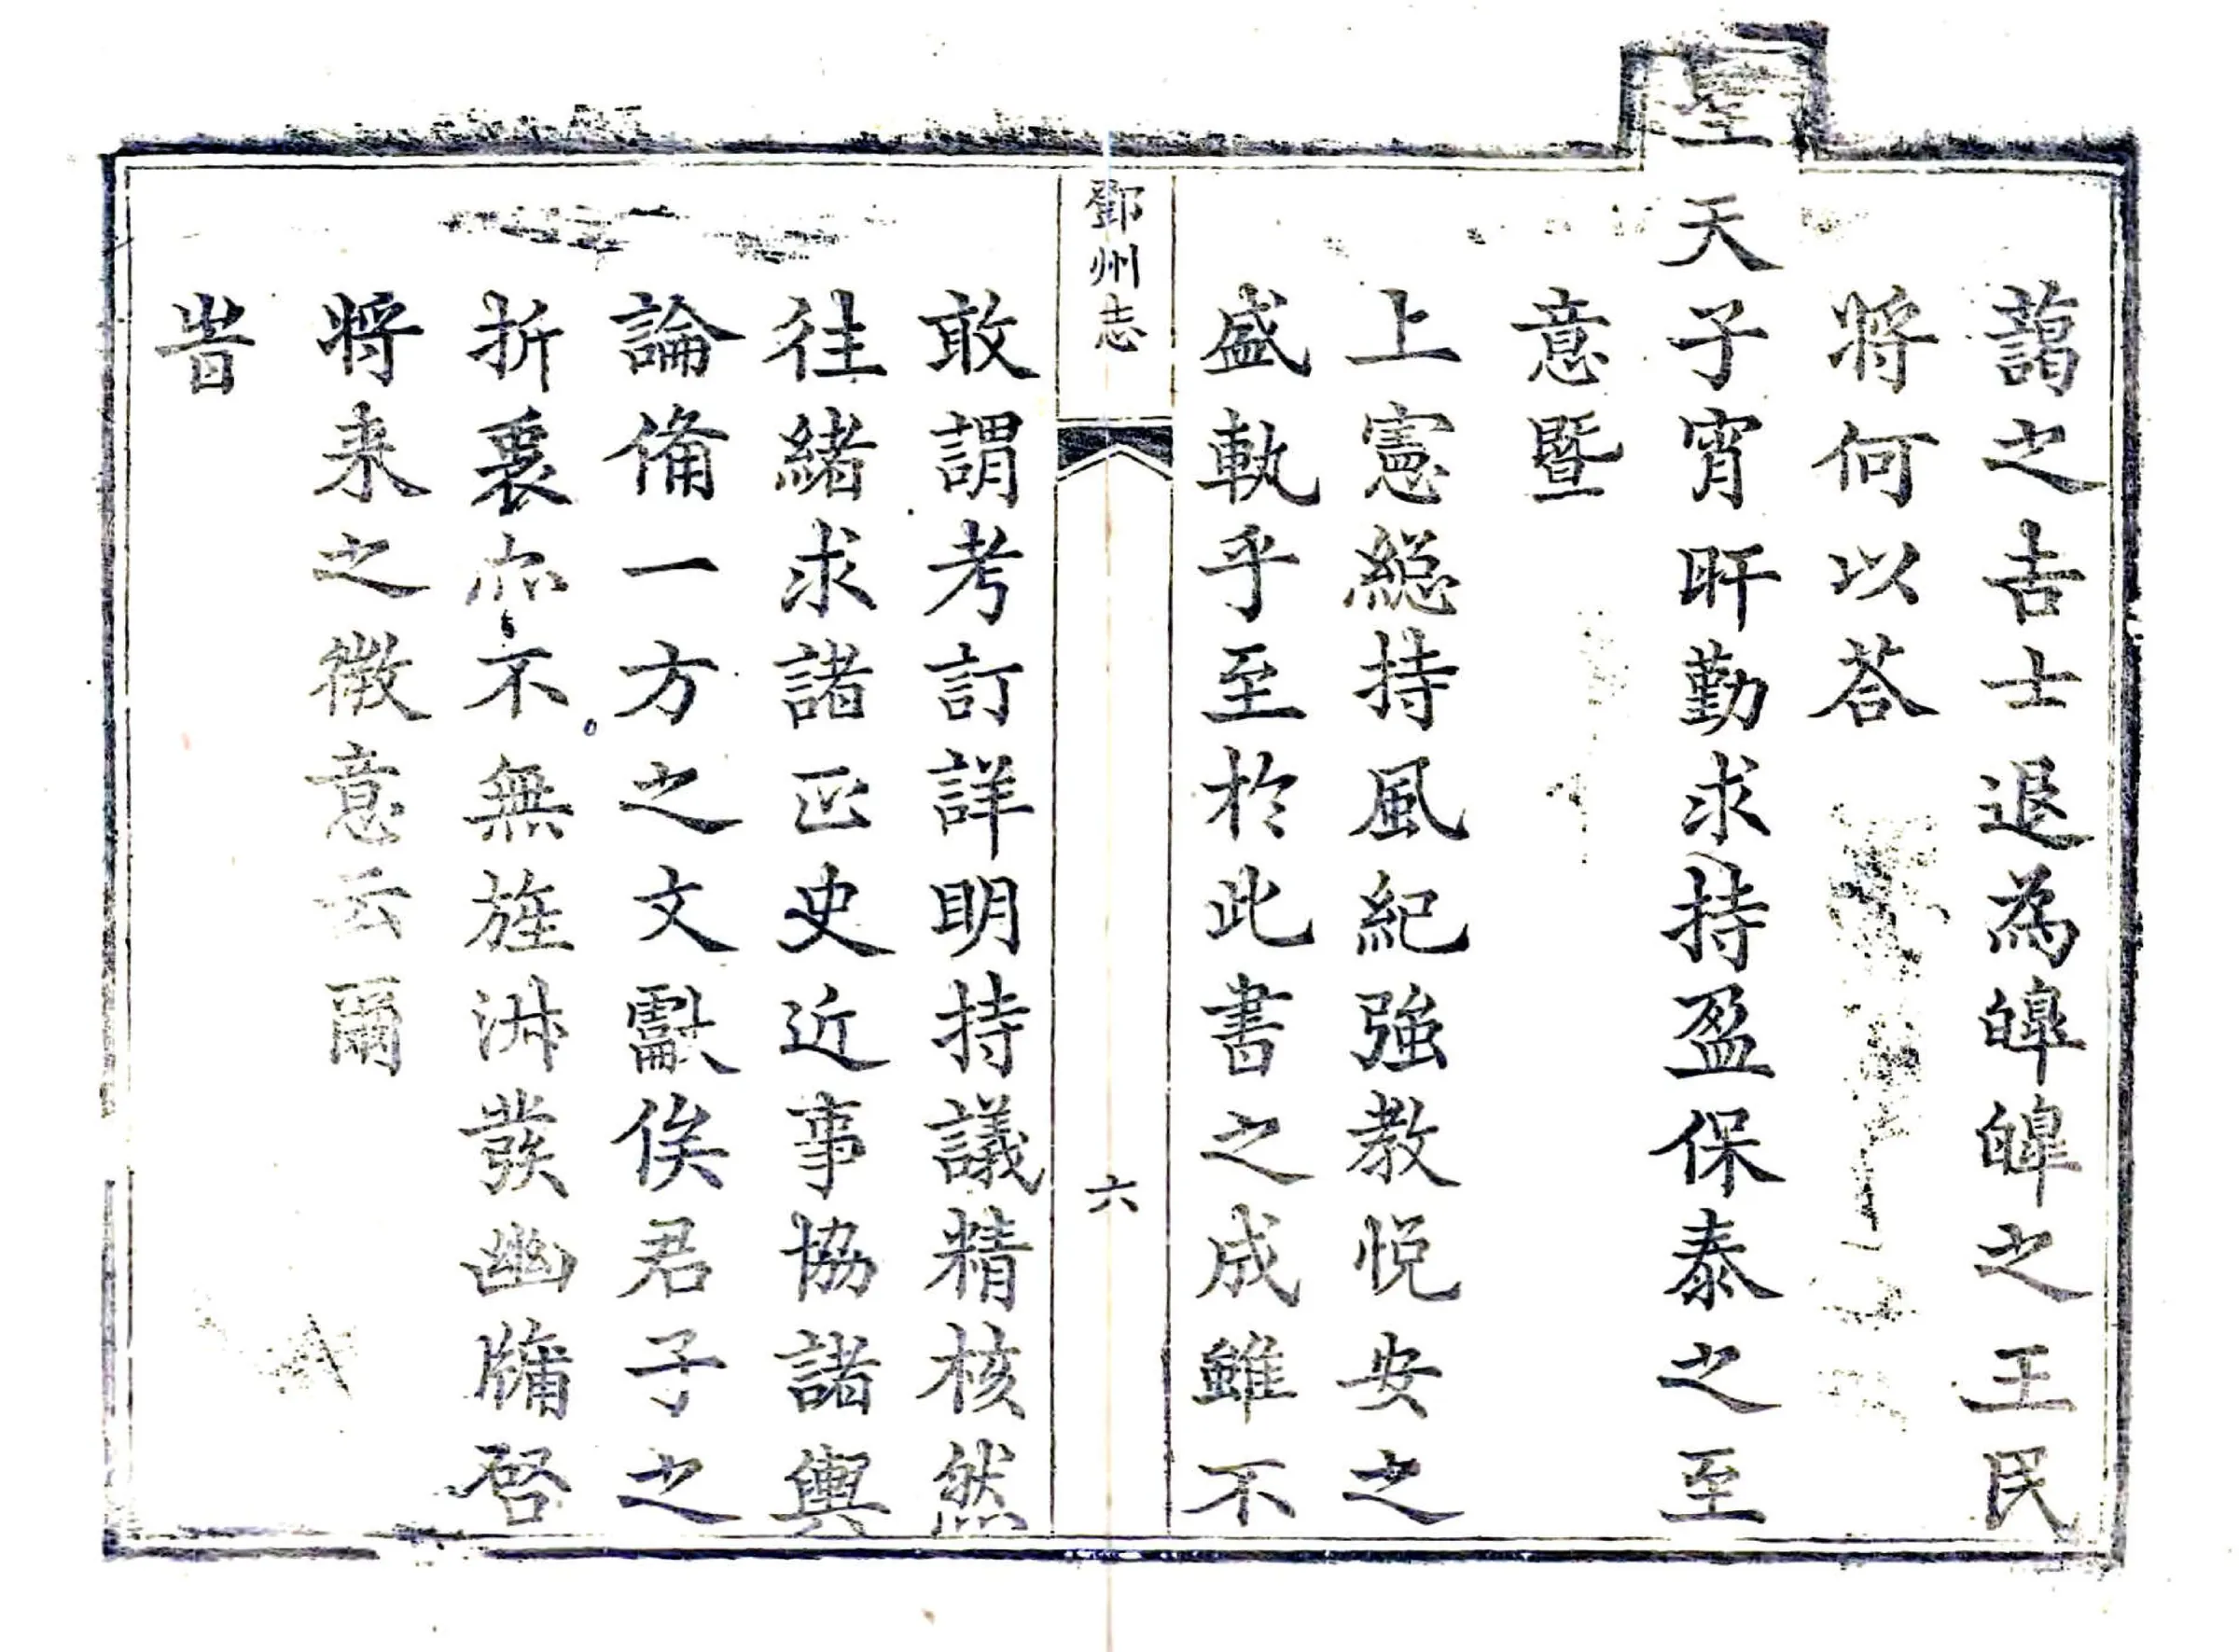 藹之吉士退為皥皥之王民
將何以荅
聖天子宵旰勤求持盈保泰之至
意暨
上憲総持風紀強教悅安之
盛軌乎至於此書之成雖不
鄧州志
六
敢謂考訂詳明持議精核然
往緒求諸正史近事協諸輿
論備一方之文獻俟君子之
折衷亦不無旌淑發幽牖啓
將来之微意云爾
旹